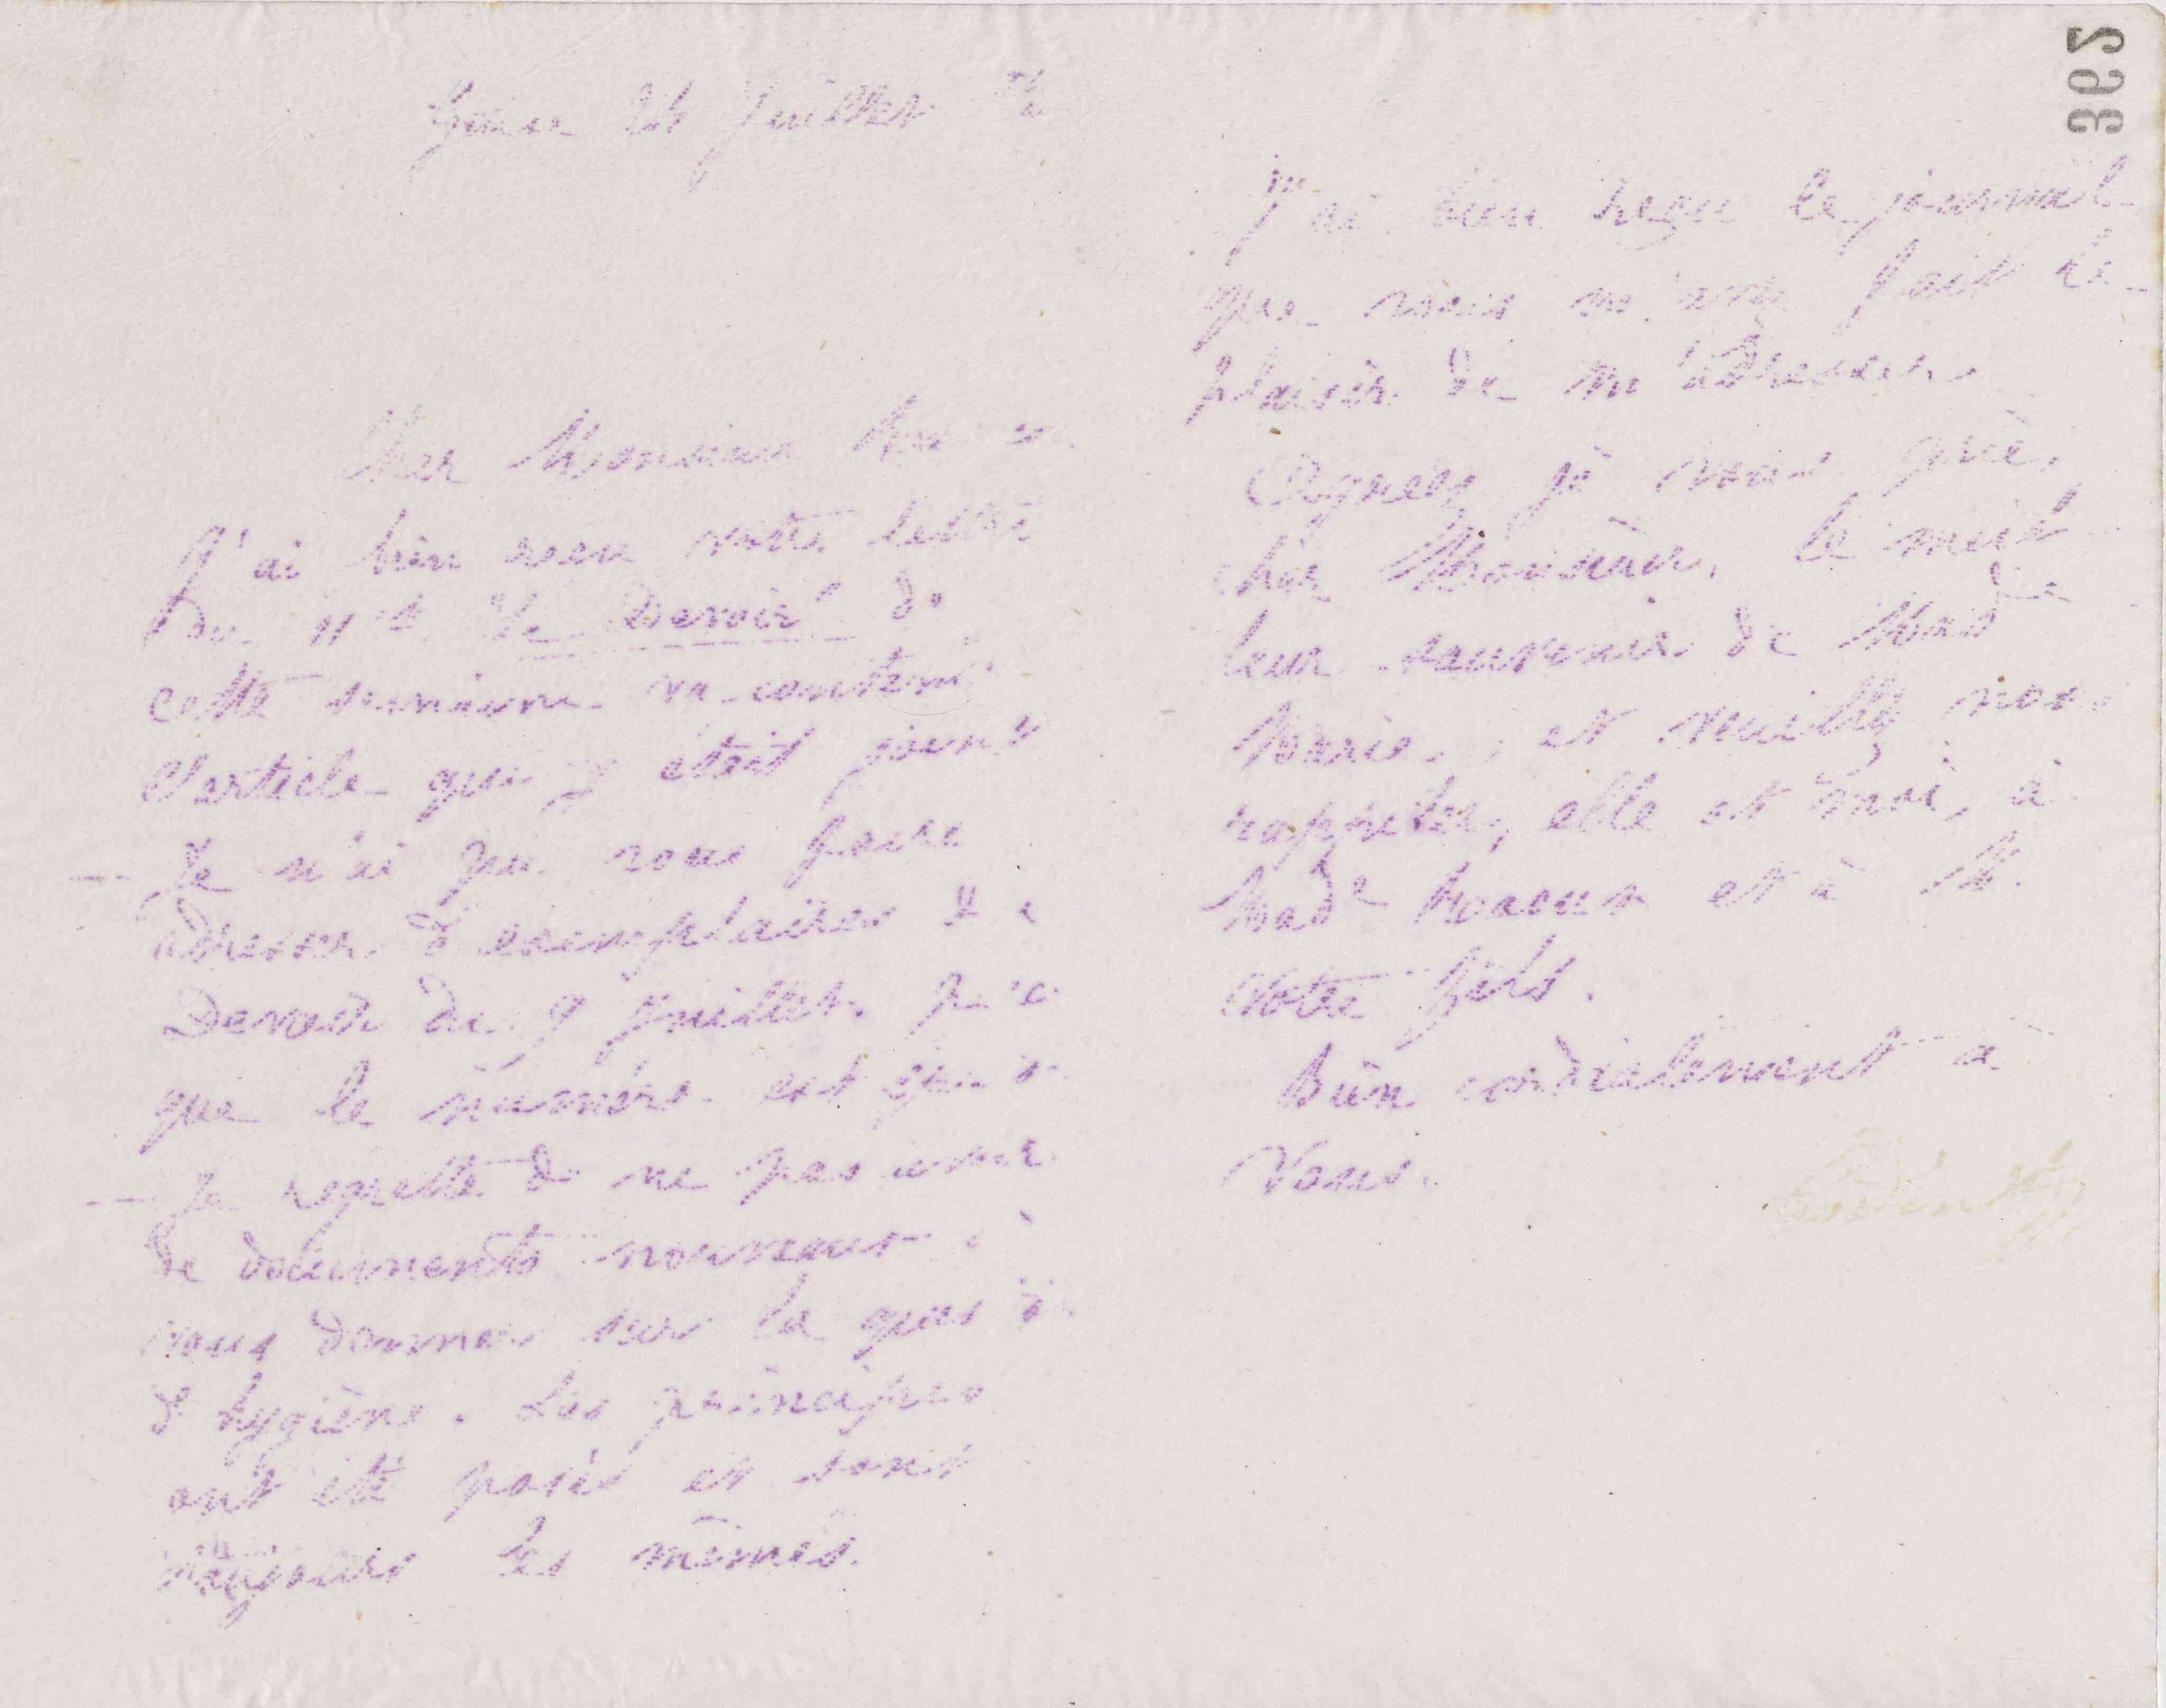 362
Guise 26 Juillet
Cher Monsieur
J'ai bien reçu votre lettre
Le n° de "Le Devoir" de
cette semaine va contenir
l'article qui y était joint
— Je n'ai pu vous faire
adresser d'exemplaires du
Devoir du 9 Juillet, parce
que le numéro est épuisé
— Je regrette de ne pas avoir
de documents nouveaux à
vous donner sur la question
d'hygiène. Les principes
ont été posés et sont
toujours les mêmes.
J'ai bien reçu le journal
que vous m'avez fait le
plaisir de m'adresser.
Agréez je vous prie,
cher Monsieur, le meil
leur souvenir de Made
Marie, et veuillez nous
rappeler, elle et moi, à
Made et à M.
votre fils.
Bien cordialement à
Vous.